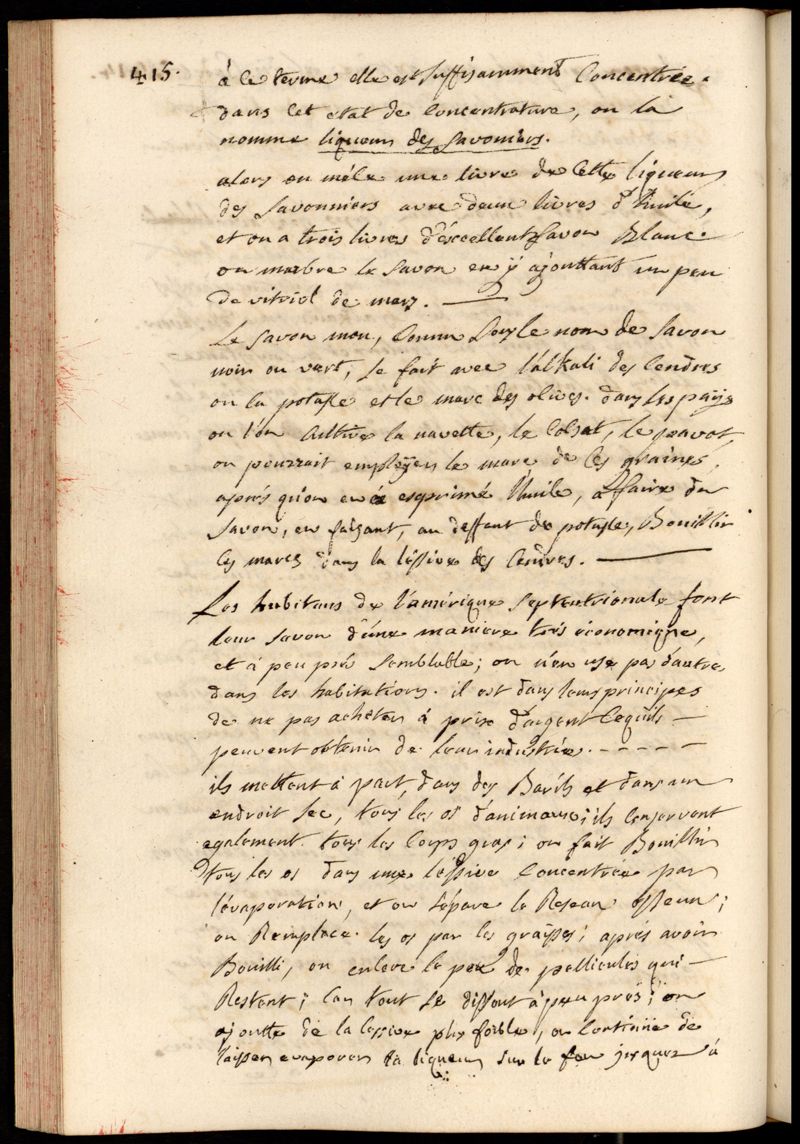 415.
à ce terme elle est suffisamment concentrée.
dans cet etat de concentrature, on la
nomme liqueurs des savoniers.
alors on mêle une livre de cette liqueurs
des savonniers avec deux livres d'huile,
et on a trois livres d'excellent savon Blanc.
on marbre le savon en y ajouttant un peu
de vitriol de mars.
Le savon mou, connu sous le nom de savon
noir ou vert, se fait avec l'alkali des cendres
ou la potasse et le marc des olives. dans les pays
ou l'on cultive la navette, le colsat, le pavot,
on pourrait employer le marc de ces graines,
après qu'on en a exprimé l'huile, a faire du
savon, en faisant, au deffaut de potasse, Bouillir
ces marcs dans la lissive des cendres.
Les habitans de l'amérique septentrionale font
leur savon d'une maniere très économique,
et à peu près semblable; on n'en use pas d'autre
dans les habitations. il est dans leurs principes
de ne pas acheter à prix d'argent ce qu'ils
peuvent obtenir de leur industrie.
ils mettent à part, dans des Barils et dans un
endroit sec, tous les os d'animaux; ils conservent
egalement tous les corps gras; on fait Bouillir
tous les os dans une lessive concentrée par
l'évaporation, et on sépare le Reseau osseux;
on Remplace les os par les graisses; après avoir
Bouilli, on enleve le peu de pellicules qui
Restent; car tout se dissout à peu près; on
ajoutte de la lessive plus foible, on continüe de
laisser evaporer la liqueur sur le feu jusques à